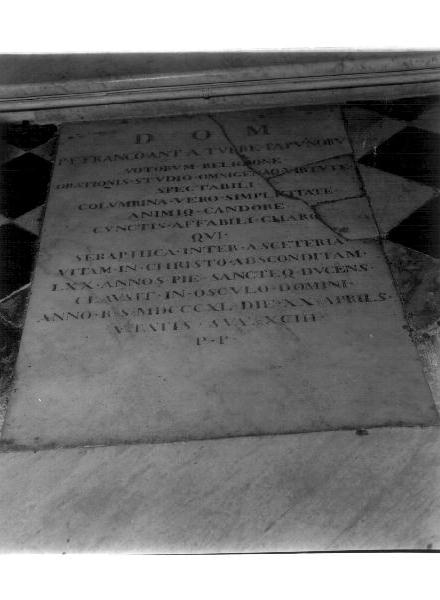 D O M
P·FRANCO·ANT·A TVRRE·PAPVNOBV
VOTORVM RELIGIONE
ORATIONIS·STVDIO·OMNIGENAQ·VIRTVTE
SPECTABILI
COLVMBINA·VERO·SIMPLICITATE
ANIMIQ·CANDORE
CVNCTIS·AFFABILI·CLARO
QVI·
SERAPHICA·INTER·ASCETERIA
VITAM·IN·CHRISTO·ABSCONDITAM·
LXX·ANNOS·PIE·SANCTEQ·DVCENS·
CLAVSIT·IN·OSCVLO·DOMINI·
ANNO·R·S·MDCCCXL·DIE·XX·APRILS·
ÆTATIS·SVÆ·XCIII·
P·P·